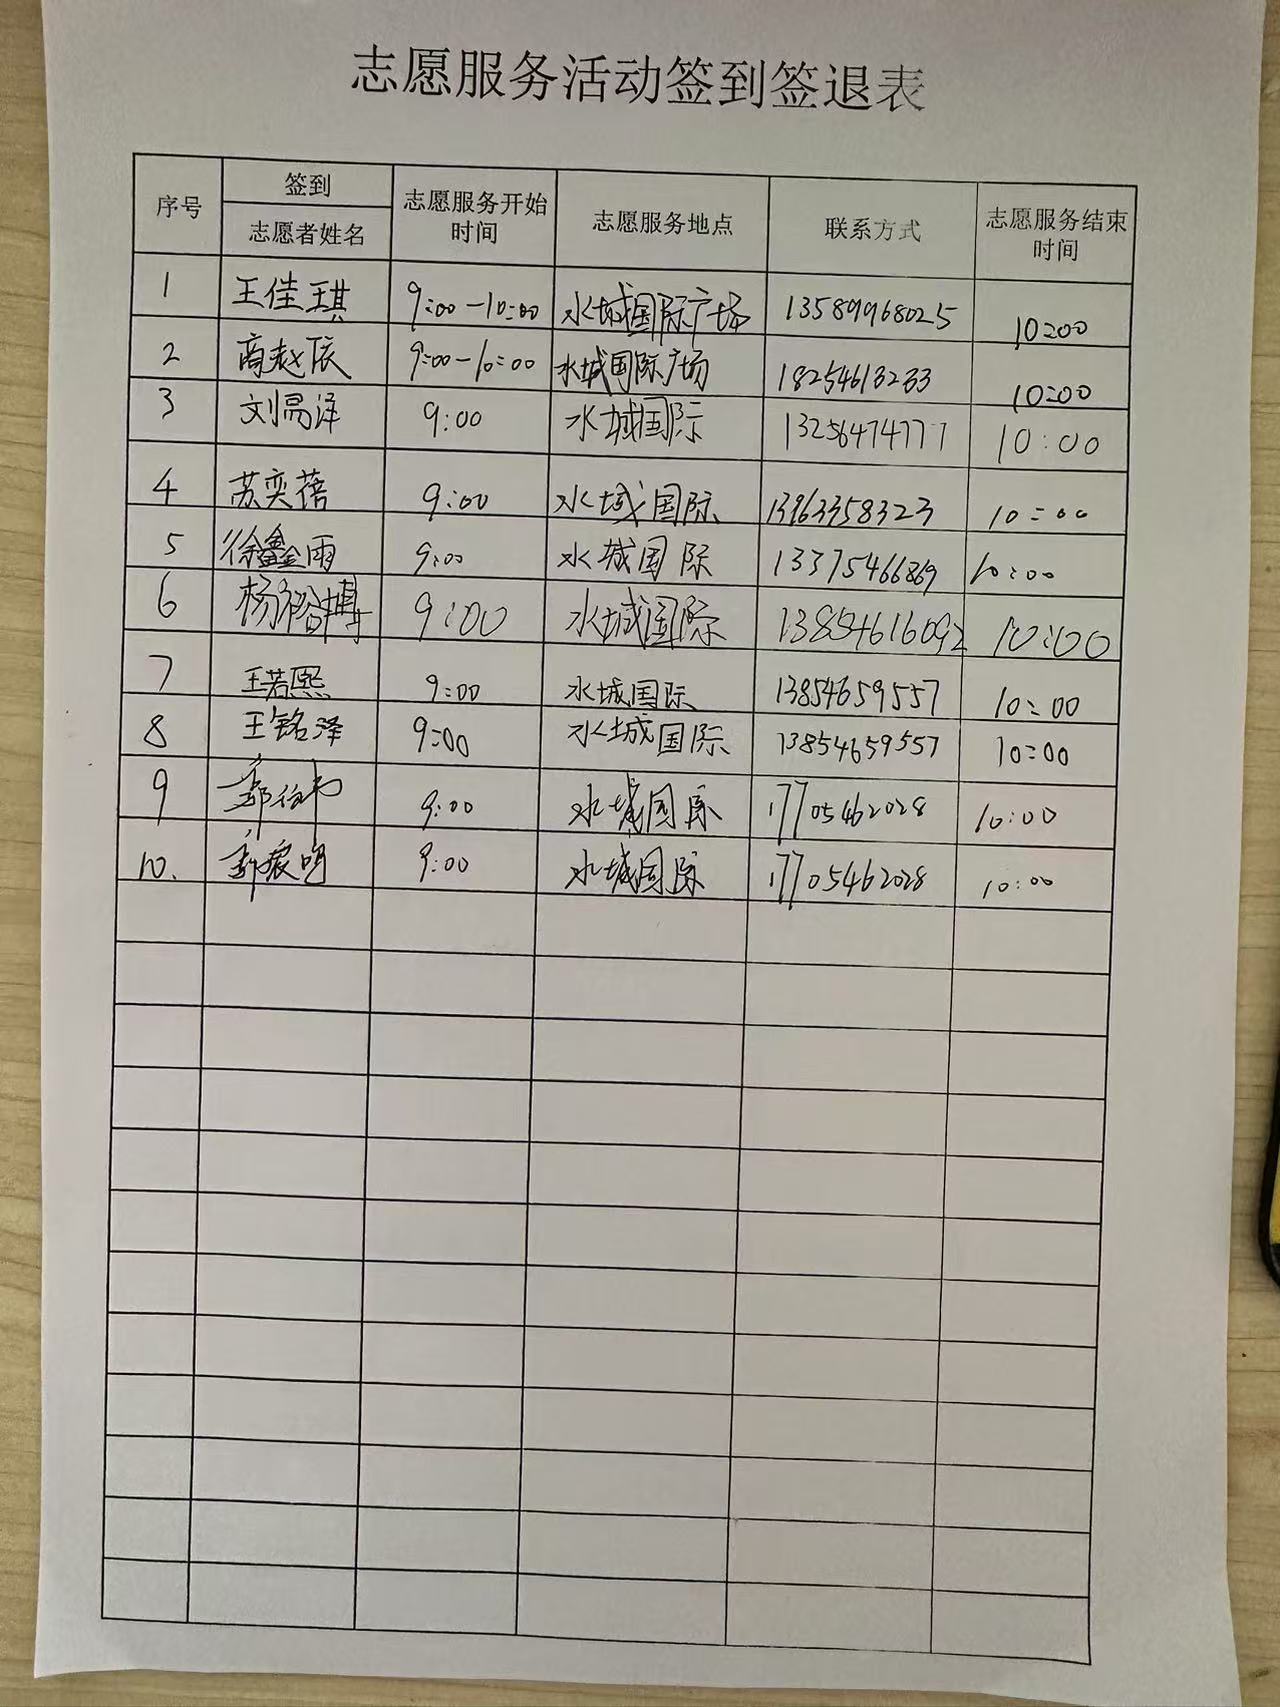 志愿服务活动签到签退表
序号 签到 志愿者姓名 志愿服务开始时间 志愿服务地点 联系方式 志愿服务结束时间
1 王佳琪 9:00-10:00 水城国际广场 13589968025 10:00
2 高赵依 9:00-10:00 水城国际广场 18254613233 10:00
3 刘昜泽 9:00 水城国际 13256474777 10:00
4 苏奕蓓 9:00 水城国际 13963358323 10:00
5 徐鑫雨 9:00 水城国际 13375466869 10:00
6 杨裕博 9:00 水城国际 13854616092 10:00
7 王若熙 9:00 水城国际 13854659557 10:00
8 王铭泽 9:00 水城国际 13854659557 10:00
9 9:00 水城国际 17705462028 10:00
10. 9:00 水城国际 17705462028 10:00